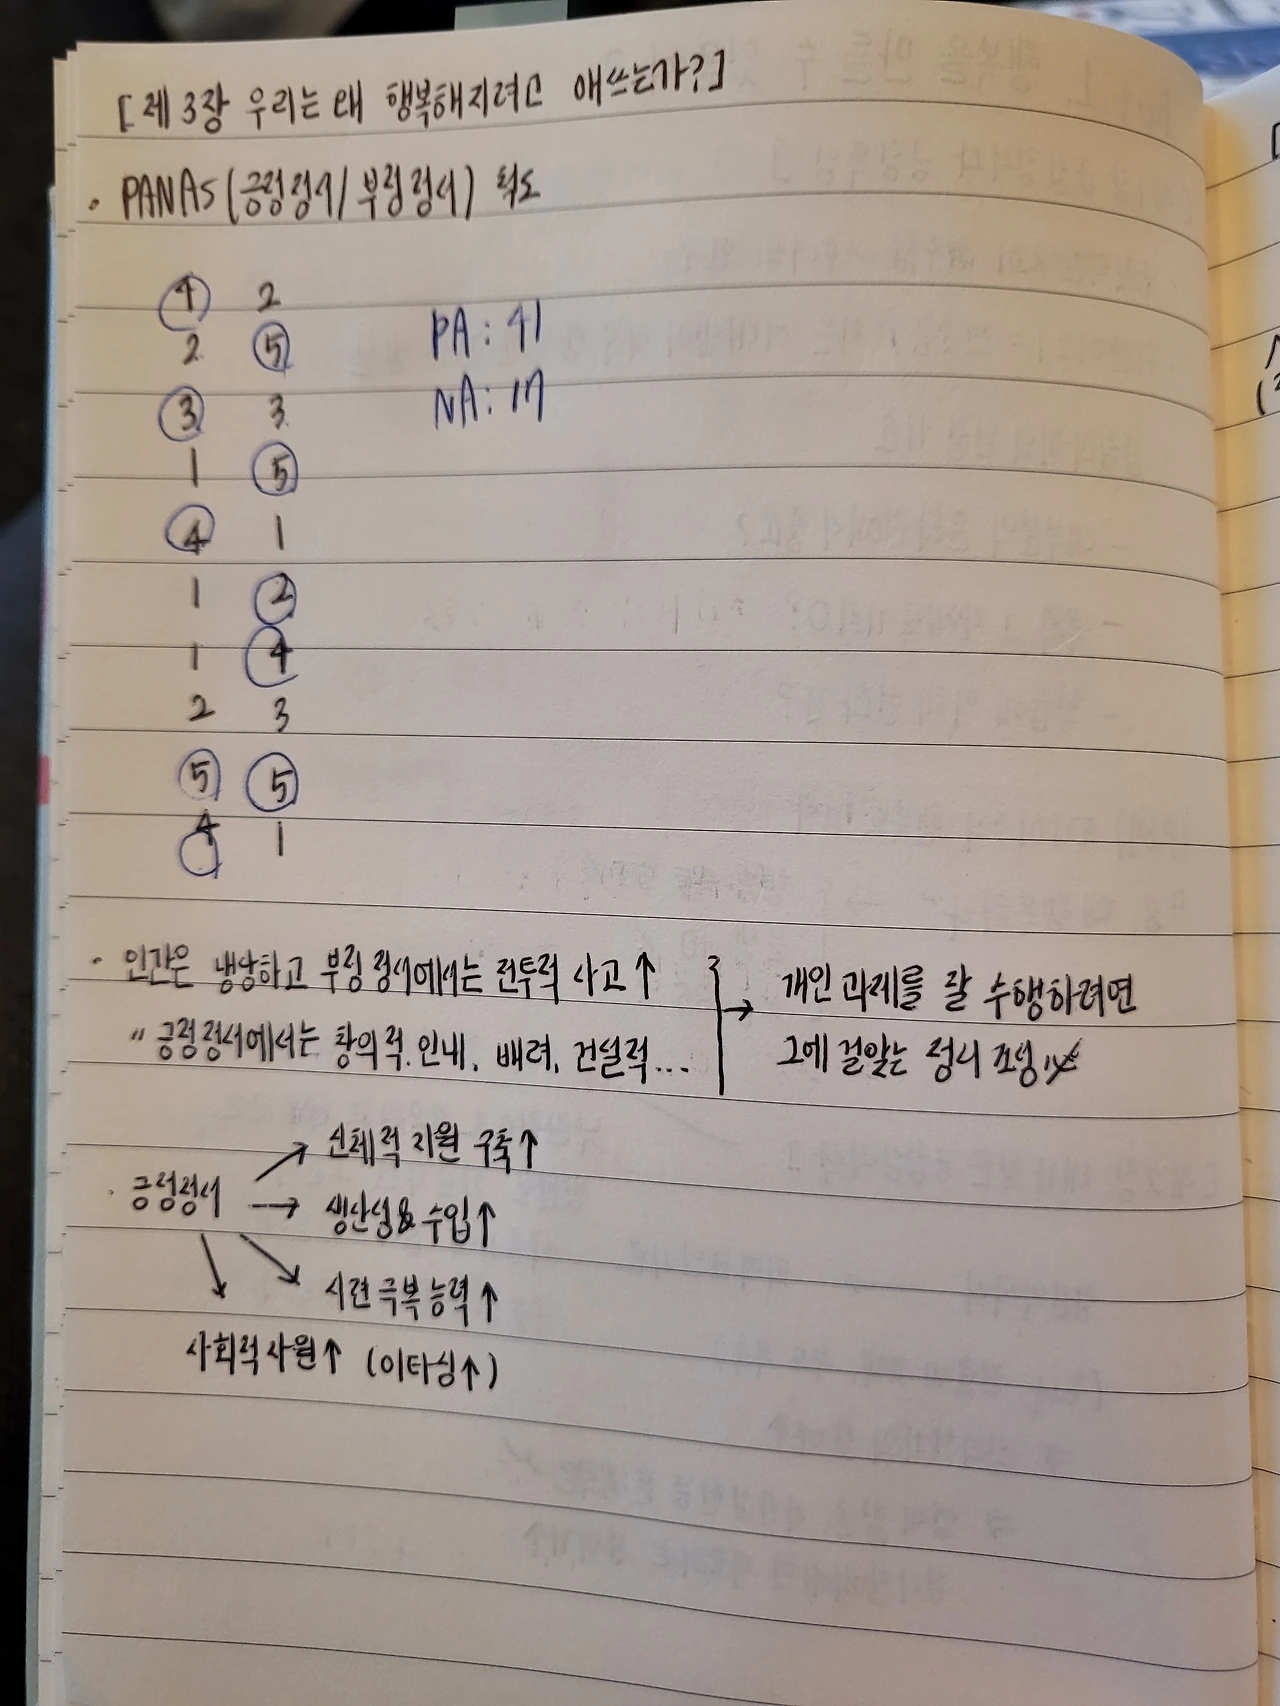 [제 3장 우리는 왜 행복해지려고 애쓰는가?]
· PANAS (긍정정서/부정정서) 척도
4 2
2 5
3 3
1 5
4 1
1 2
1 4
2 3
5 5
4 1
PA : 41
NA : 17
· 인간은 냉담하고 부정정서에서는 전투적 사고↑
〃 긍정정서에서는 창의적. 인내, 배려, 건설적...
→ 개인 과제를 잘 수행하려면
그에 걸맞는 정서 조성
· 긍정정서
→ 신체적 자원 구축↑
→ 생산성& 수입↑
시련 극복 능력↑
사회적 자원↑ (이타심↑)